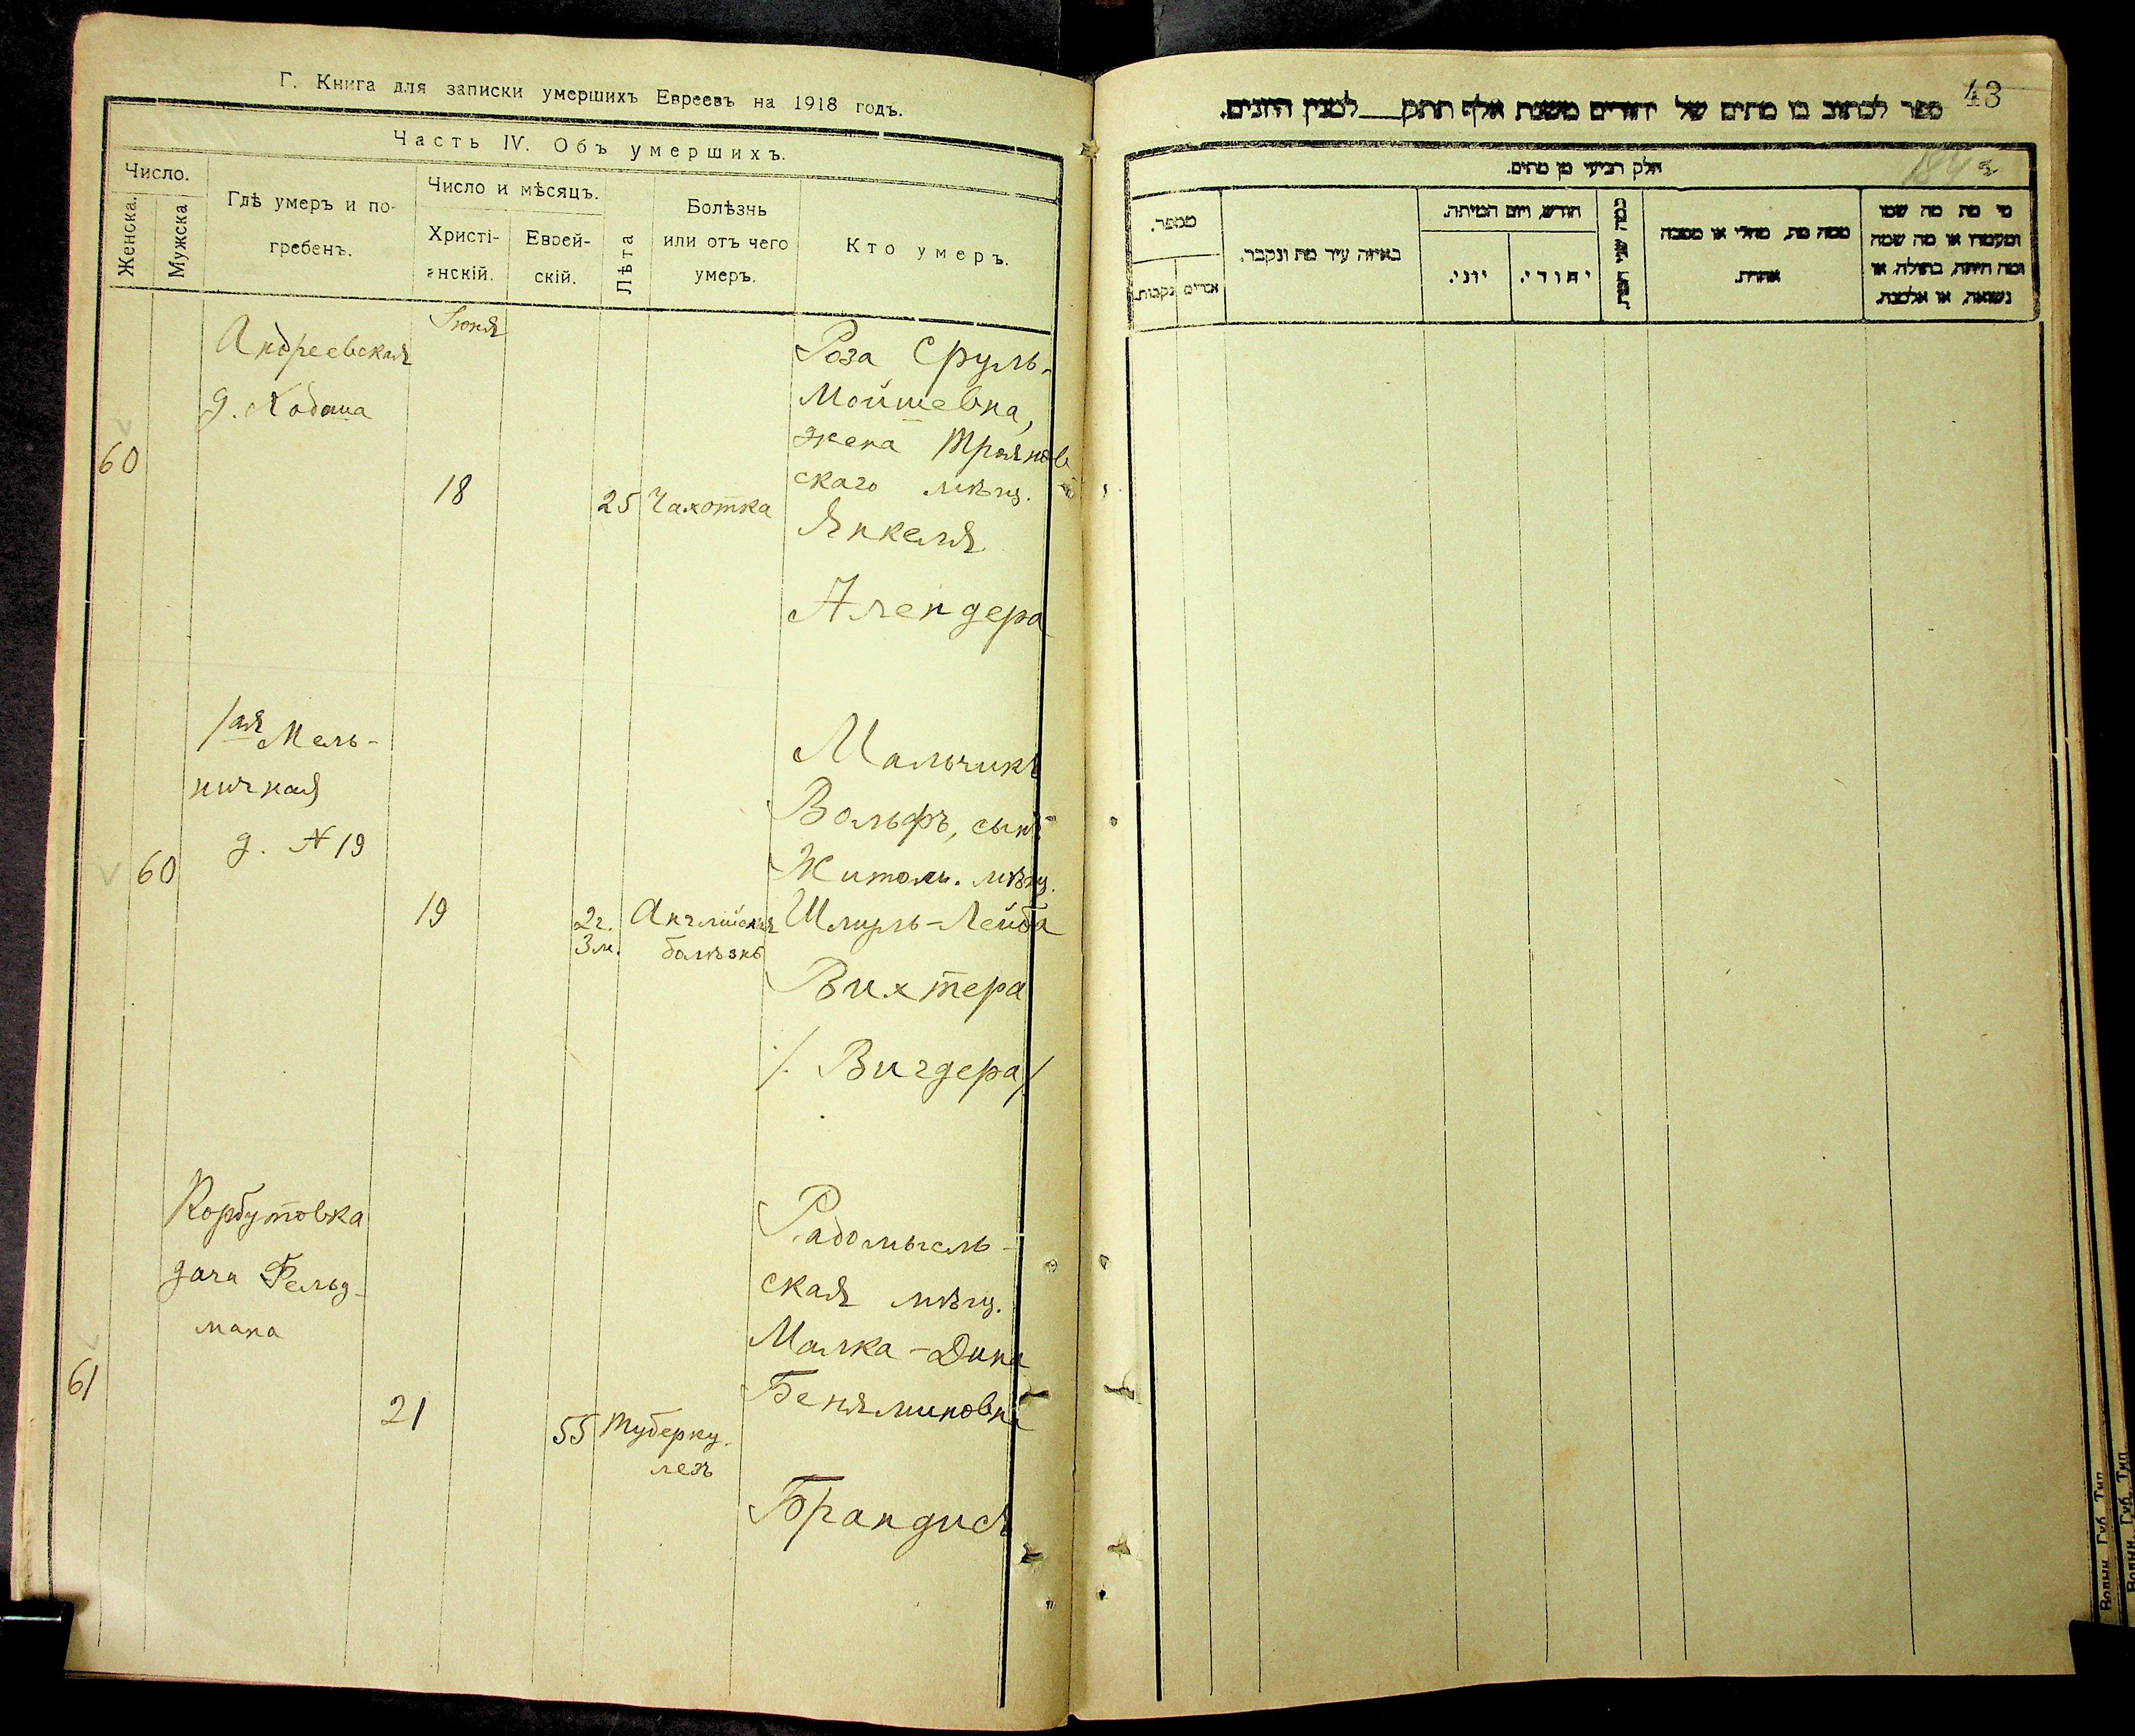 Г. Книга для записки умершихъ Евреевъ на 1918 годъ.
Часть IV. Объ умершихъ.
Число.
Женска.
Мужска
Гдѣ умеръ и по-
гребенъ.
Число и мѣсяцъ.
Христі-
анскій.
Еврей-
скій.
Лѣта
Болѣзнь
или отъ чего
умеръ.
Кто умеръ.
60
Андреевская
д. Кодана
Іюня
18
25
Чахотка
Роза Сруль-
Мойшевна,
жена Троянов
скаго мѣщ.
Янкеля
Алендера
60
1ая Мель-
ничная
д. № 19
19
2г.
3м.
Англійская
болѣзнь
Мальчикъ
Вольфъ, сынъ
Житом. мѣщ.
Шмуль-Лейба
Вихтера
/. Вигдера/
61
Корбутовка
дача Фельд-
мана
21
55
Туберку-
лезъ
Радомысль-
ская мѣщ.
Малка-Дина
Беняминовна
Брандися
43
ספר לכתוב בו מתים של יהודים משנת אלף תתק___למנין היונים.
חלק רביעי מן מתים.
ממספר.
זכרים
נקבות.
באיזה עיר מת ונקבר.
חודש, ויום המיתה.
יוני.
יהודי.
ממה מת, מחלי או מסבה
אחרת.
מי מת מה שמו
ומעמדו או מה שמה
ומה היתה, בתולה, או
נשואה, או אלמנה.
Волын. Губ. Тип.
Волын. Губ. Тип